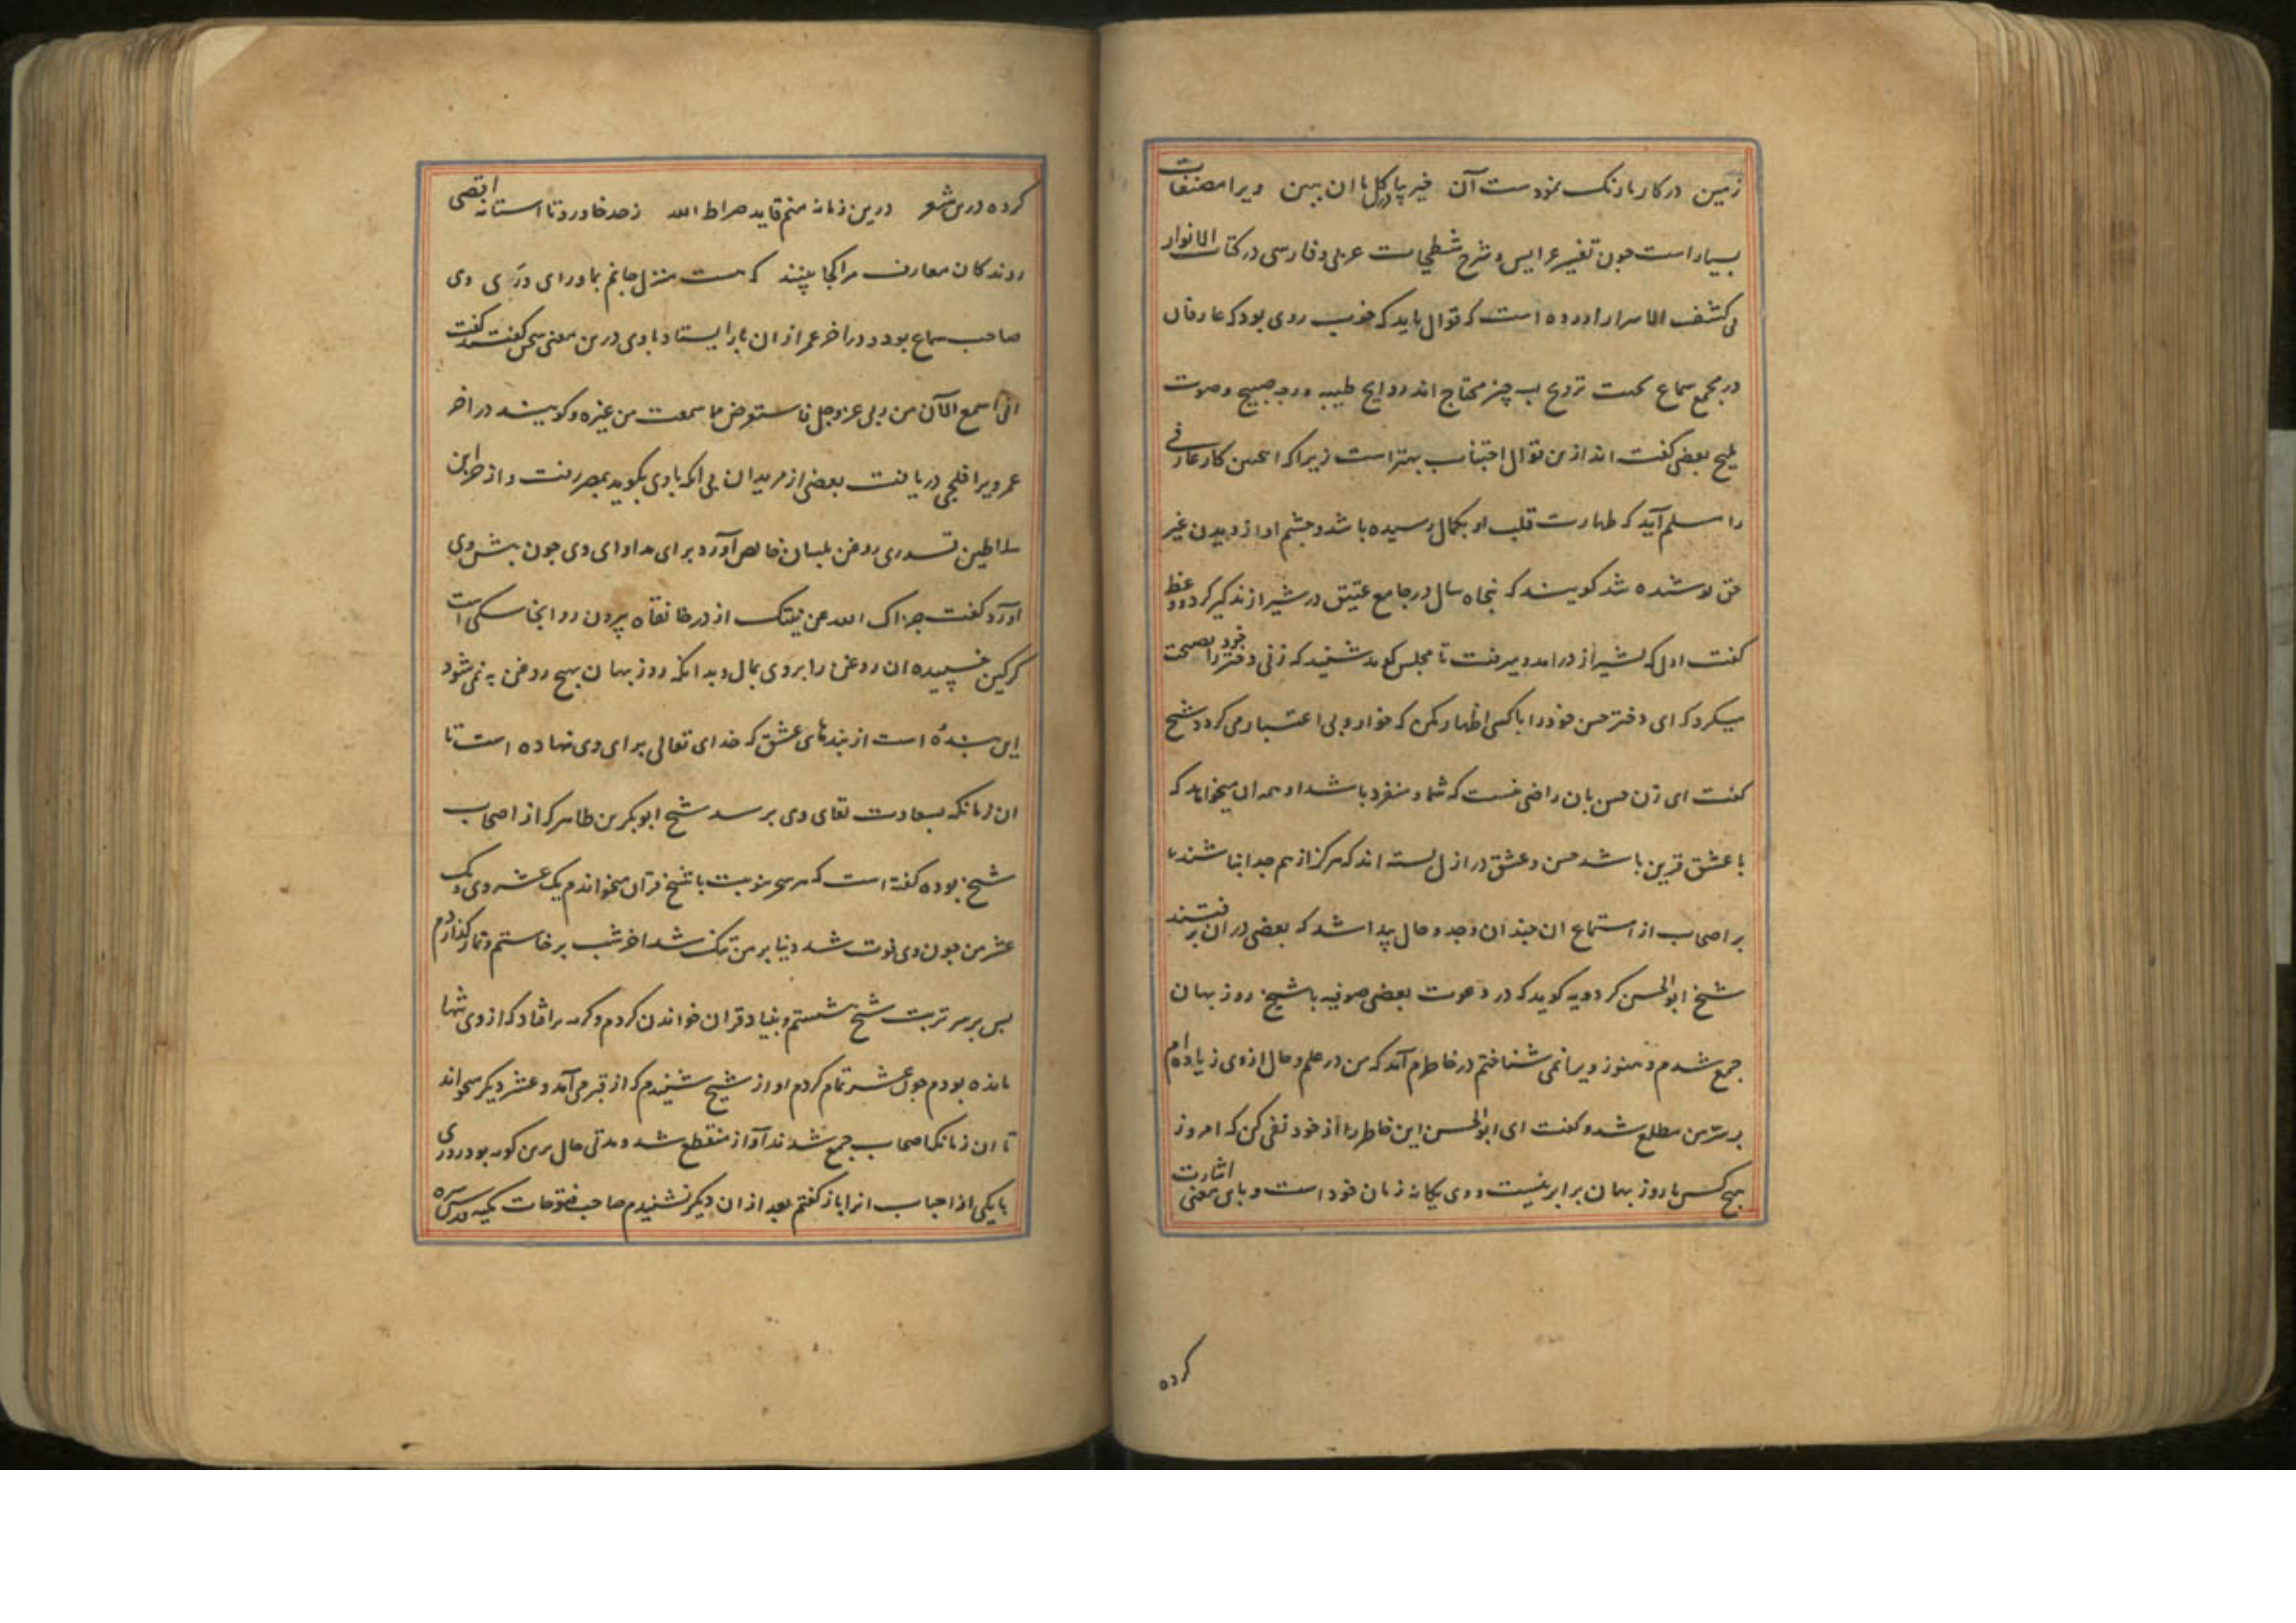 زمین در کار بارنک نمودست آن خیز پا در کل با ان ببین ویرا مصنفات
بسیار است جون تفسیر عرایس و شرح شطحیات عربی و فارسی در کتاب الانوار
فی کشف الاسرار اورده است که قوال باید که خوب روی بود که عارفان
در مجمع سماع بجهت ترویح بسه چیز محتاج اند روایح طیبه و وجه صبیح و صوت
ملیح بعضی کفته اند ازین قوال اجتناب بهتر است زیرا که اینجنین کار عارفی
را مسلم آید که طهارت قلب او بکمال رسیده باشد و جشم او از دیدن غیر
حق پوشیده شد کویند که پنجاه سال در جامع عتیق در شیراز تذکیر کرد و وعظ
کفت اول که بشیراز درامد و میرفت تا مجلس کوید شنید که زنی دختر خود را نصیحت
میکرد که ای دختر حسن خود را با کسی اظهار مکن که خوار و بی اعتبار می کردد شیخ
کفت ای زن حسن بان راضی نیست که تنها و منفرد باشد او همه ان میخواهد که
با عشق قرین باشد حسن و عشق در ازل بسته اند که هرکز از هم جدا نباشند
بر اصحاب از استماع ان جندان وجد و حال پیدا شد که بعضی در ان برفتند
شیخ ابوالحسن کردویه کوید که در دعوت بعضی صوفیه با شیخ روزبهان
جمع شدم و هنوز ویرا نمی شناختم در خاطرم آمد که من در علم و حال از وی زیاده ام
بر سر من مطلع شد و کفت ای ابوالحسن این خاطر را از خود نفی کن که امروز
هیچ کس با روزبهان برابر نیست و وی یکانه زمان خود است و باین معنی اشارت
کرده
کرده درین شعر درین زمانه منم قاید صراط الله ز حد خاور و تا استانه اقصی
روندکان معارف مرا کجا بینند که هست منزل جانم بماورای وری وی
صاحب سماع بود و در اخر عمر از ان باز ایستاد با وی درین معنی سخن کفتند کفت
انی اسمع الآن من ربی عز و جل فاستعرض ما سمعت من غیره و کویند در اخر
عمر ویرا فلجی دریافت بعضی از مریدان بی انکه با وی بکوید بمصر رفت و از خزاین
سلاطین قدری روغن بلسان خالص آورد برای مداوای وی جون بیش وی
آورد کفت جزاک الله عن نیتک از در خانقاه بیرون رو انجا سکی است
کرکین خسپیده ان روغن را بروی بمال و بدانکه روزبهان بهیچ روغن به نمی شود
این بندۀ است از بندهای عشق که خدای تعالی بر پای وی نهاده است تا
ان زمانکه بسعادت لقای وی برسد شیخ ابوبکر بن طاهر که از اصحاب
شیخ بوده کفته است که هر سحر بنوبت با شیخ قرآن میخواندم یک عشر وی و یک
عشر من جون وی فوت شد دنیا بر من تنک شد اخر شب برخاستم و نماز کذاردم
بس بر سر تربت شیخ نشستم و بنیاد قران خواندن کردم و کریه برافتاد که از وی تنها
مانده بودم جون عشر تمام کردم اواز شیخ شنیدم که از قبر می آمد و عشر دیکر میخواند
تا ان زمانکه اصحاب جمع شدند آواز منقطع شد و مدتی حال برین کونه بود روزی
با یکی از احباب انرا باز کفتم بعد از ان دیکر نشنیدم صاحب فتوحات مکیه قدس سره